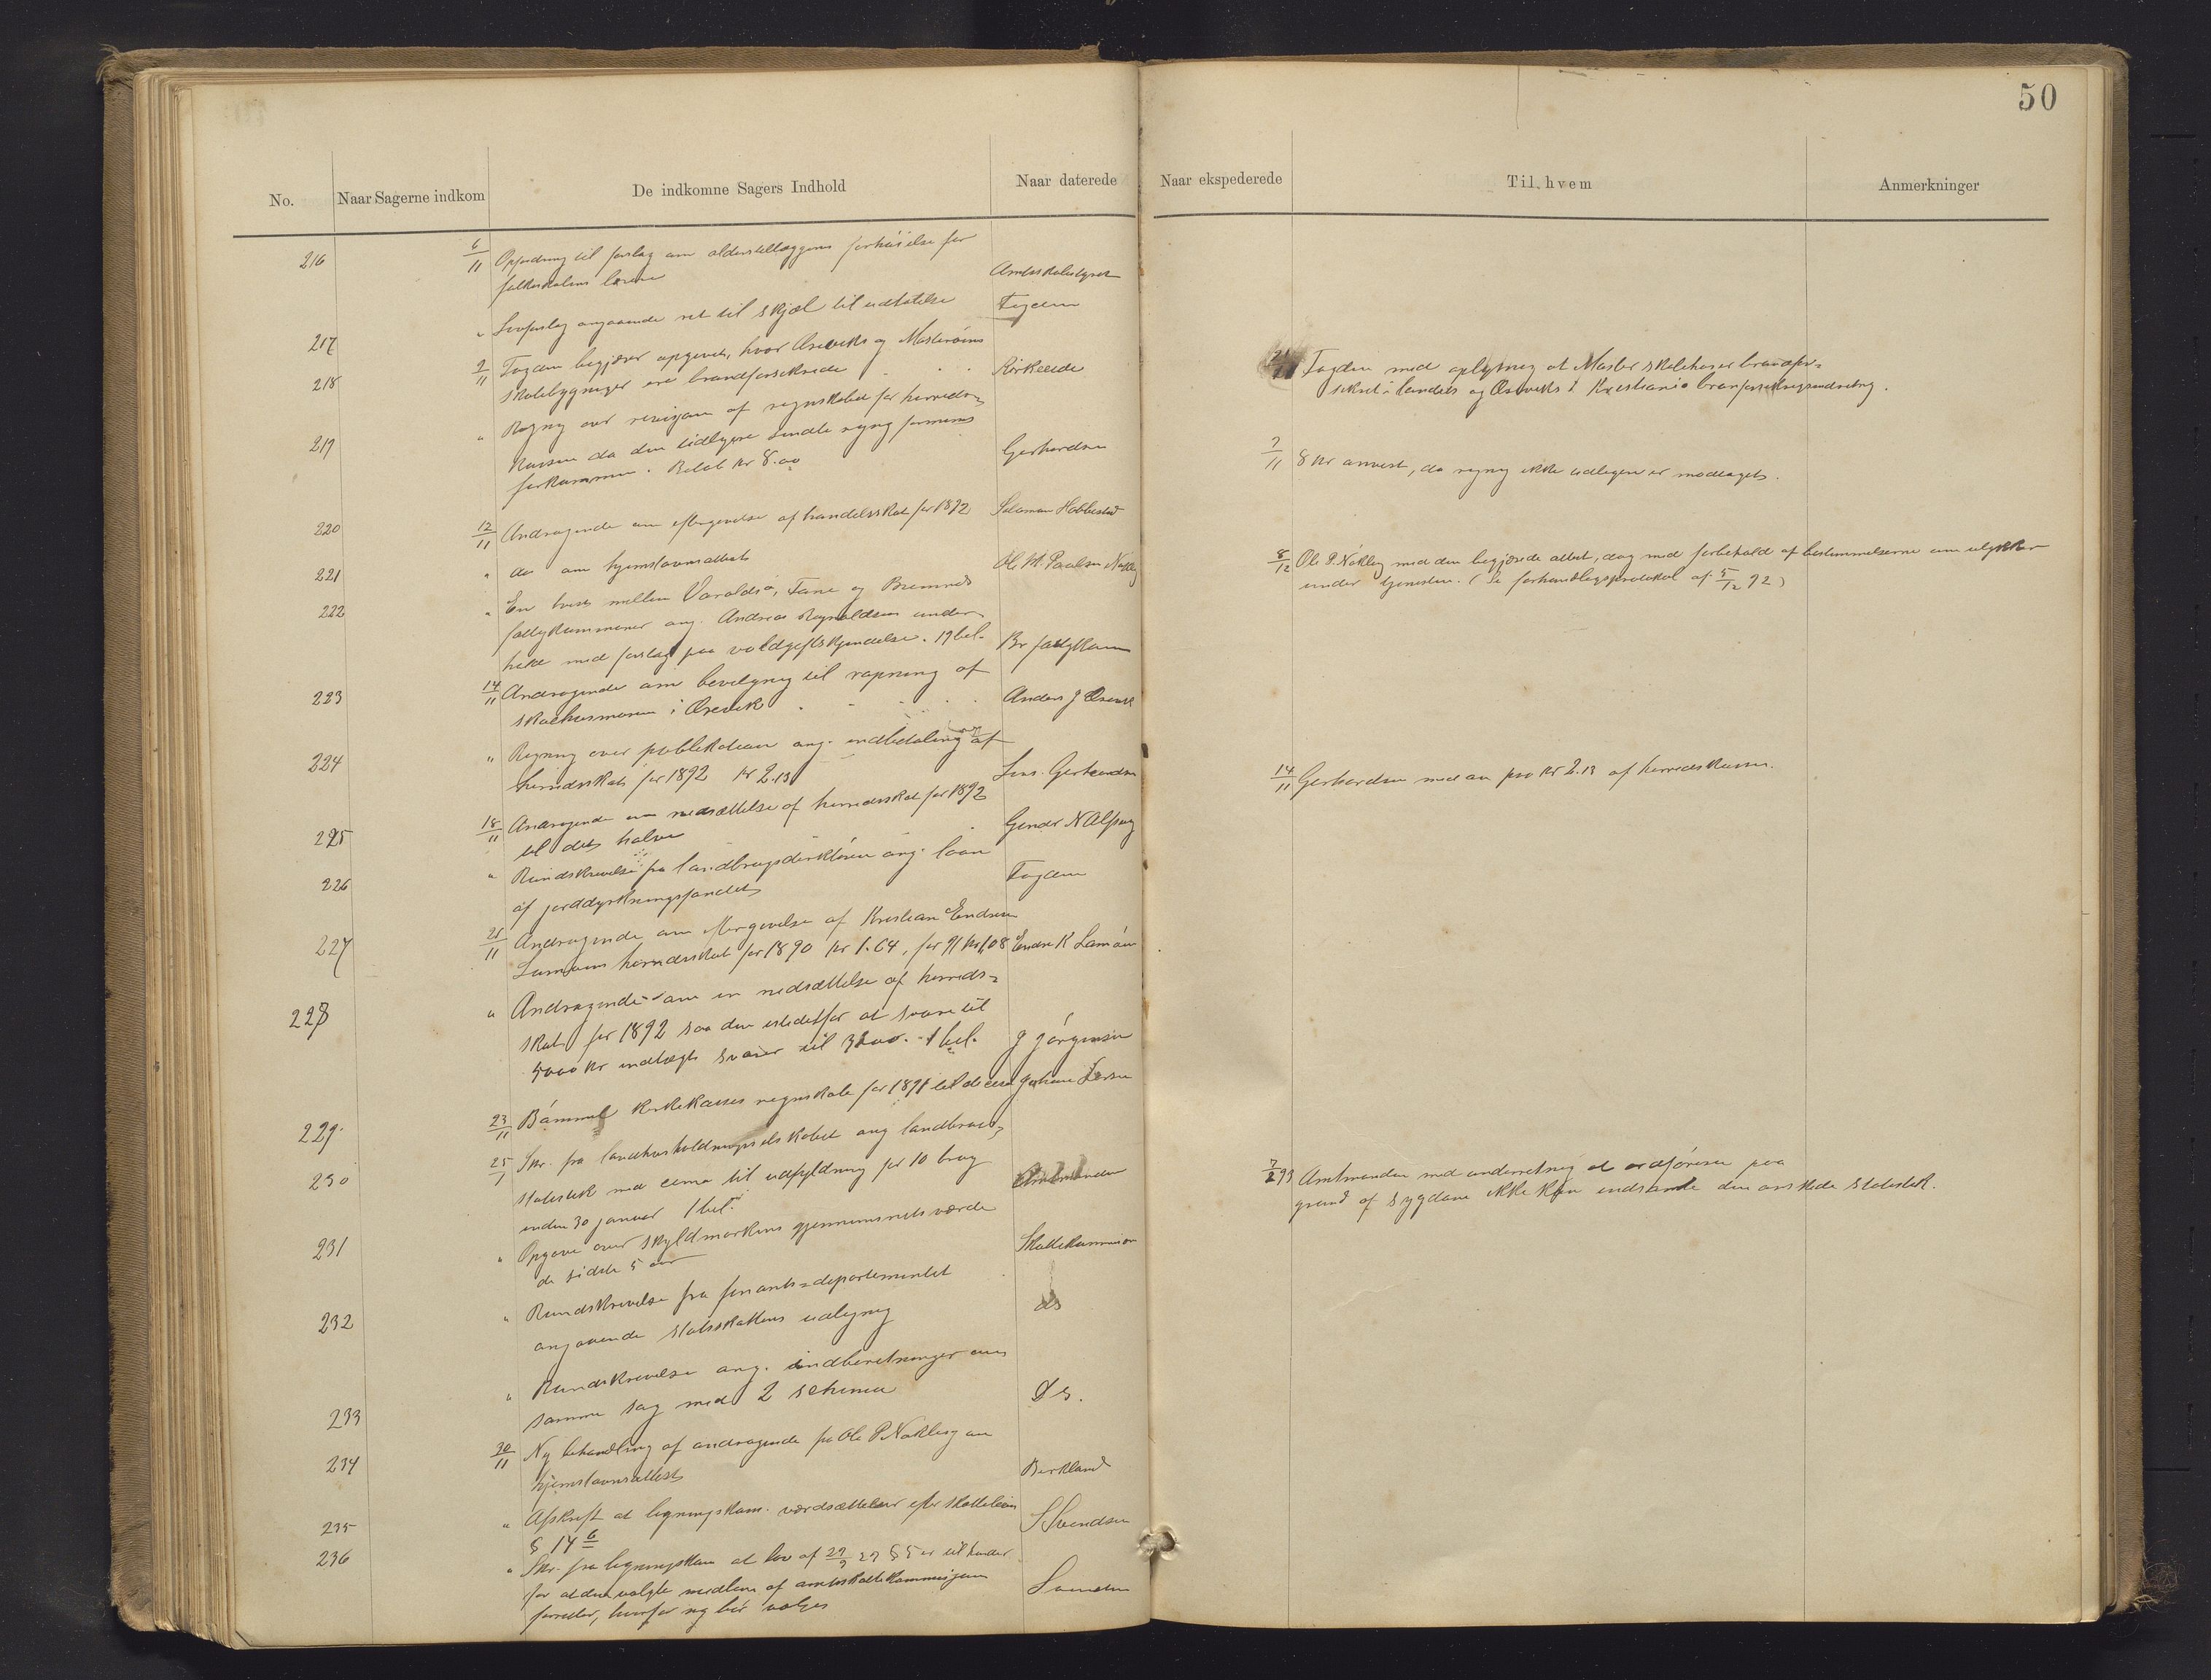 50
No. Naar Sagerne indkom De indkomne Sagers Indhold Naar daterede Naar ekspederede Til hvem Anmerkninger
216 6/11 Opfordring til forslag om alderstillæggens forhøielse for
folkeskolens lærere Amtsskolestyret
217 " Lovforslag angaaende ret til skjæl til udtalelse Fogden
218 9/11 Fogden begjærer opgivet, hvor Øreviks og Mosterøens
skolebygninger ere brandforsikrede
219 " Regning over revisjon af regnskabet for herreds-
kassen da den tidligere sendte regng formenes
forkommen. Beløb kr 8.00 Gerhardsen
220 12/11 Andragende om eftergivelse af handelsskat for 1892 Salomon Hobbestad
221 " do om hjemstavnsattest Ole M. Paulsen
222 " En tvist mellem Varaldsø, Fane og Bremnes
fattigkommuner ang. Andreas Reynoldsen under-
hold med forslag paa voldgiftskjendelse. 19 bil. Br fattigkom
223 14/11 Andragende om bevilgning til af
i Ørevik Anders JØrevik
224 " Regning over publikation ang. indbetaling af
herredsskat for 1892 kr 2.13 Lens. Gerhardsen
225 18/11 Andragende om nedsættelse af herredsskat for 1892
til det halve
226 " Rundskrivelse fra landbrugsdirektøren ang. laan
af jorddyrkningsfondet Fogden
227 21/11 Andragende om eftergivelse af Kristian Endresen
herredsskat for 1890 kr 1.64, for 91 kr 1,08 Endre K
228 " Andragende om en nedsættelse af herreds-
skat for 1892 saa den istedetfor at svare til
5000 kr indtægt svarer til 3200. 1 bil. J Jørgensen
229. 23/11 Bømmel kirkekasses regnskab for 1891 til decisn Johan Larsen
230 25/1 Skr. fra landhusholdningsselskabet ang landbrugs-
statistik med til udfyldning for 10 brug
inden 30 januar 1 bil. Amtmanden
231 " Opgave over skyldmarkens gjennemsnitsværdi
de sidste 5 aar Skattekommision
232 " Rundskrivelse fra finants-departementet
angaaende statsskattens udligng do
233 " Rundskrivelse ang. indberetninger om
samme sag med 2 schema Ds.
234 30/11 Ny behandling af andragende fra Ole P. Nøkling om
hjemstavnsattest Birkland
235 " Afskrift at ligningskom. værdsættelser efter skatteloven
§ 14 6 S Svendsen
236 " Skr. fra ligningskom at lov af 29/9 29 § 5 er til hinder
for at den valgte medlem af amtsskattekommisjonen
, hvorfor ny bør vælges
21/11 Fogden med oplysning at Moster skolehus er brandfor-
sikret i landets og Øreviks i Kristiania branforsikringsindretng.
7/11 8 kr anvist, da regng ikke tidligere er modtaget.
8/12 Ole P. Nøkling med den begjærede attest, dog med forbehold af bestemmelserne om ulykker
under tjenesten. (Se forhandlingsprotokol af 5/12 92)
14/11 Gerhardsen med an paa kr 2.13 af herredskassen.
7/2 93 Amtmanden med underretning at ordføreren paa
grund af sygdom ikke kan indsende den ønskede statistik.